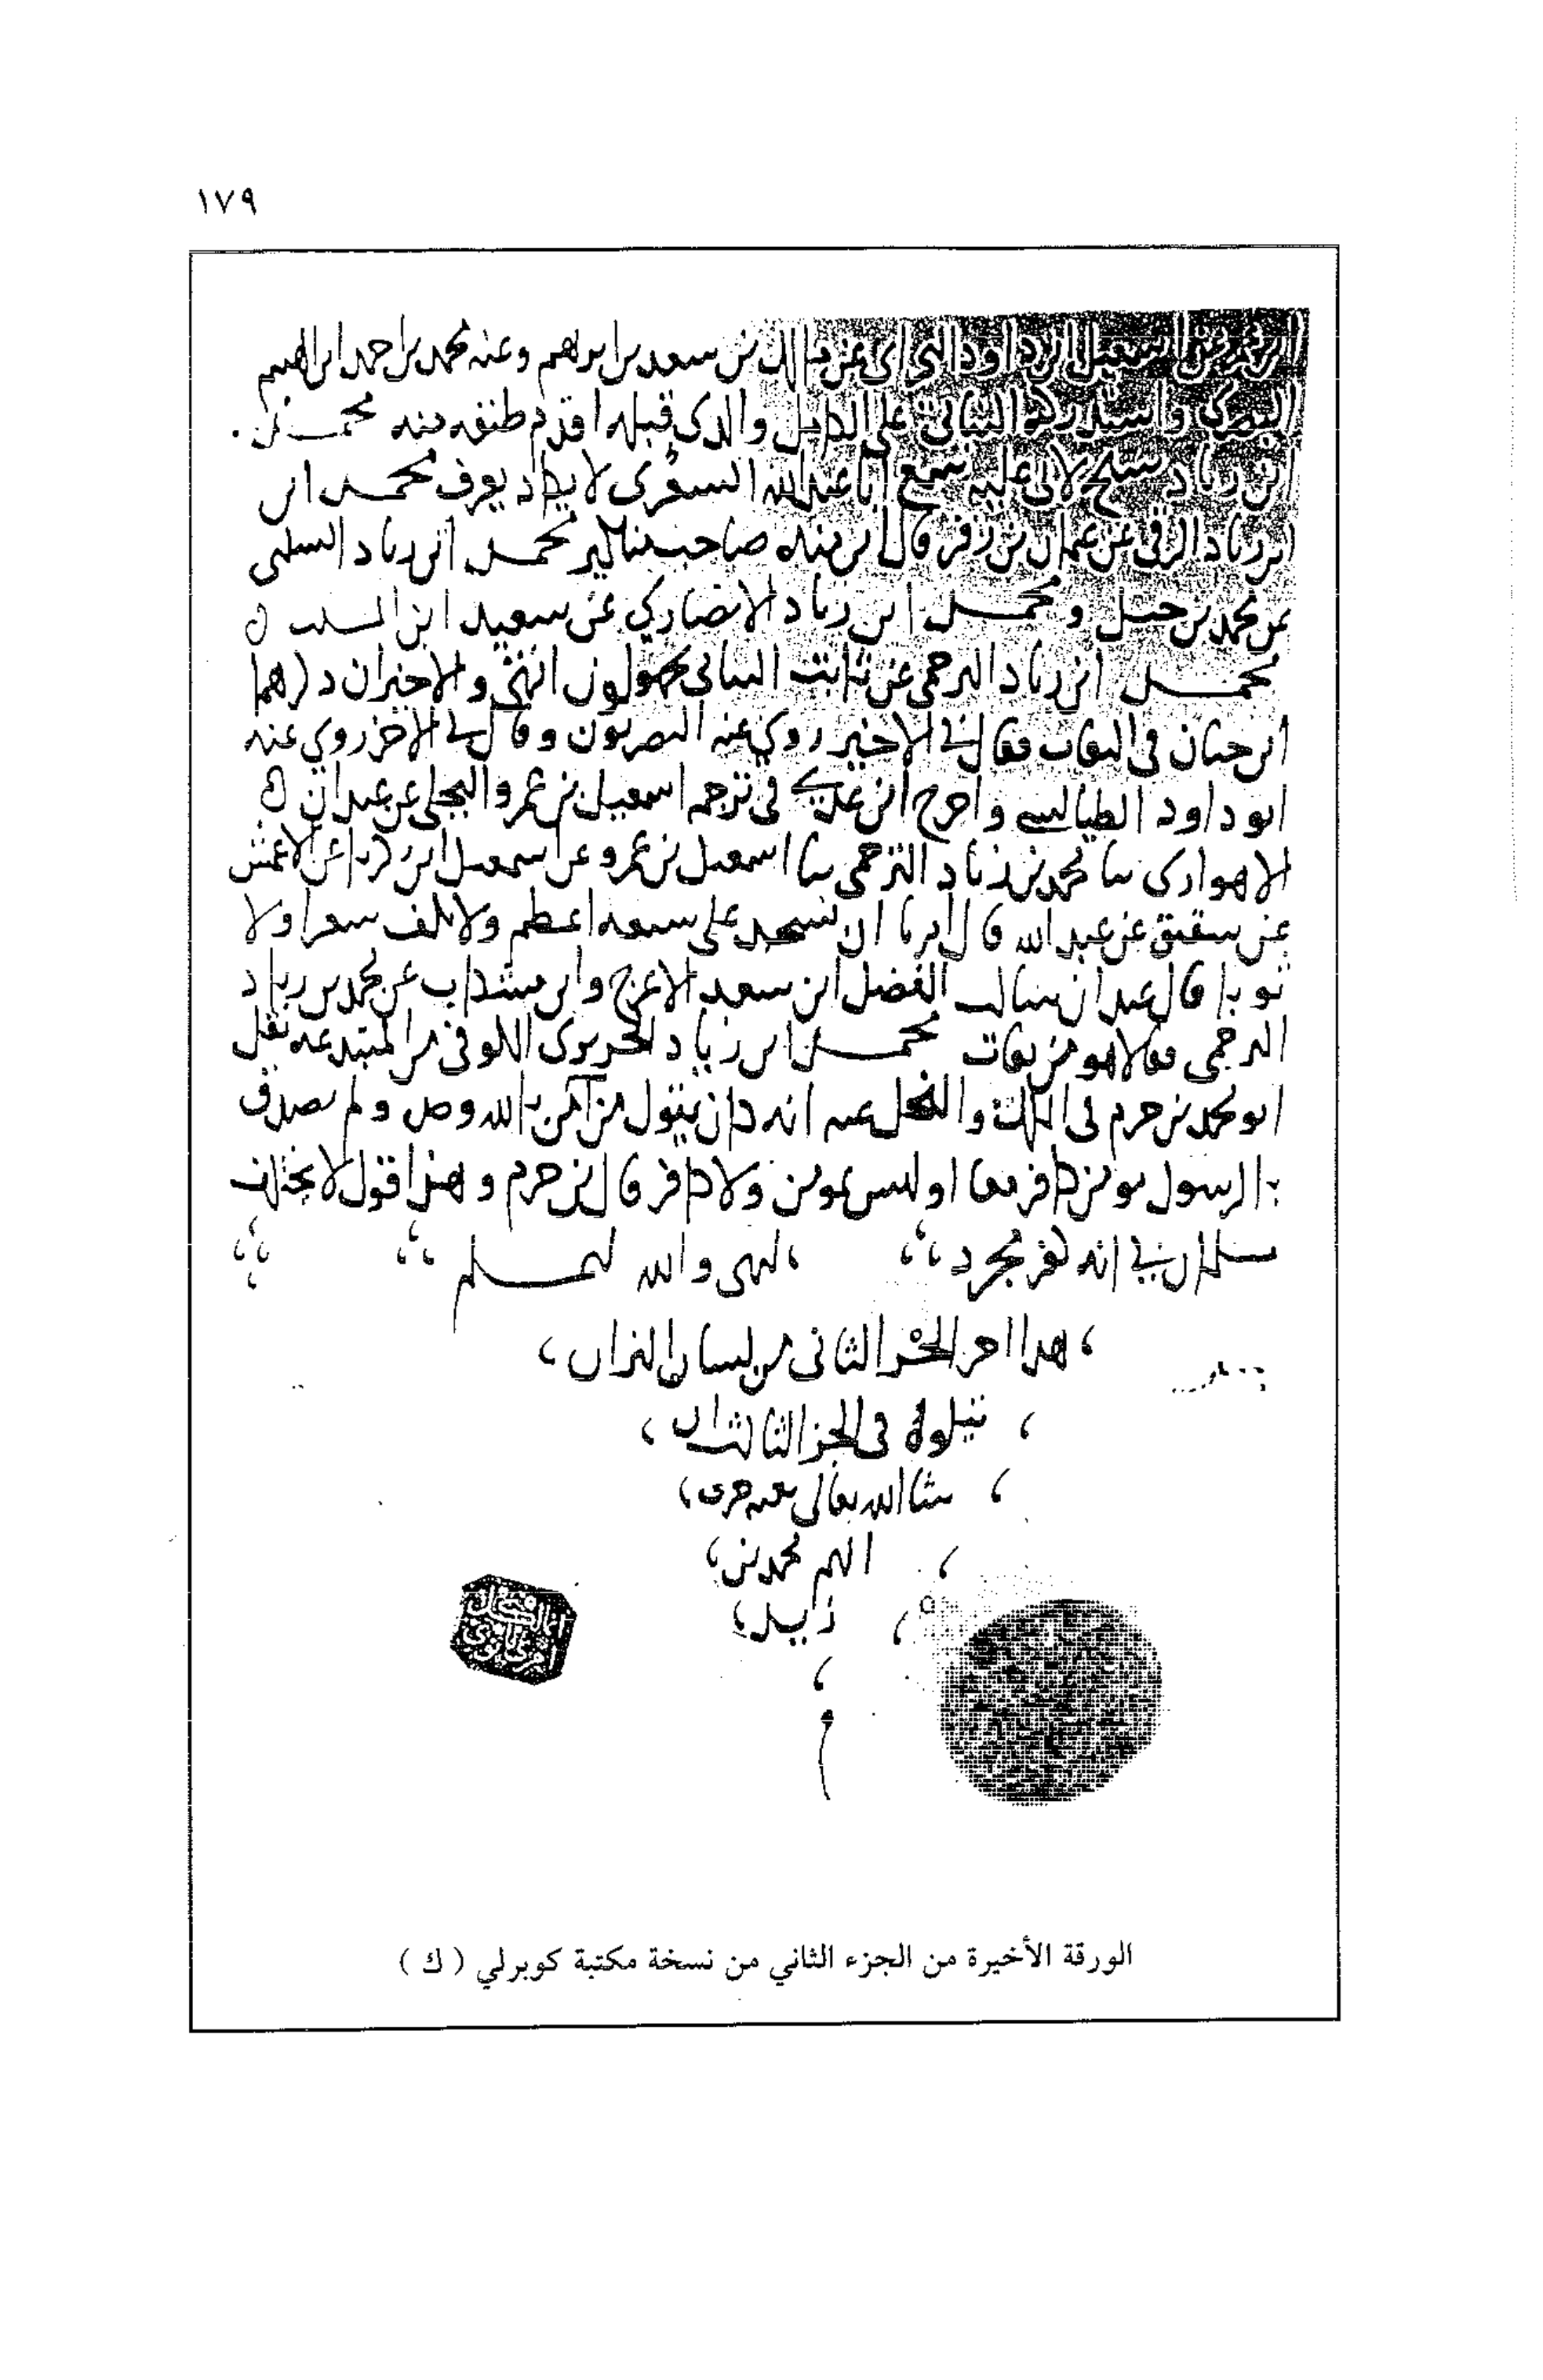 ١٧٩
بن سعد بن ابراهيم وعنه محمد بن احمد ابن ابراهيم
على الدليل والذي قبله اقدم طبقه منه محمد بن
ابن زياد شيخ لابن علية سمع ابا عبد الله الشقري لا يكاد يعرف محمد ابن
ابن زياد الرقي عن عثمان بن زفر قال ابن منده صاحب مناكير محمد ابن زياد السلمي
عن محمد بن ومحمد ابن زياد الانصاري عن سعيد ابن المسيب
محمد ابن زياد البرجمي عن ثابت البناني مجهولون انتهى والاخيران ذكرهما
ابن حبان في الثقات فقال في الاخير روى عنه البصريون وقال في الاخر روى عنه
ابو داود الطيالسي واخرج ابن عدي في ترجمة اسمعيل بن عمرو البجلي عن عبدان
الاهوازي ثنا محمد بن زياد البرجمي ثنا اسمعيل بن عمرو عن اسمعيل ابن زكريا عن الاعمش
عن شقيق عن عبد الله قال امرنا ان نسجد على سبعة اعظم ولا نكف شعرا ولا
ثوبا قال عبدان سالت الفضل ابن سهد الاعرج وابن اشكاب عن محمد بن زياد
البرجمي فقالا هو من ثقات محمد ابن زياد الحريري الكوفي من المبتدعه نقل
ابو محمد بن حزم في الملل والنحل عنه انه كان يقول من آمن بالله وحده ولم يصدق
بالرسول مومن كافر معا او ليس بمومن ولا كافر قال ابن حزم وهذا قول لا يختلف
مسلمان في انه كفر مجرد انتهى والله اعلم
هذا اخر الجزء الثاني من لسان الميزان
يتلوه في الجز الثالث ان
شا الله تعالى
محمد بن
زيد
الورقة الأخيرة من الجزء الثاني من نسخة مكتبة كوبرلي ( ك )